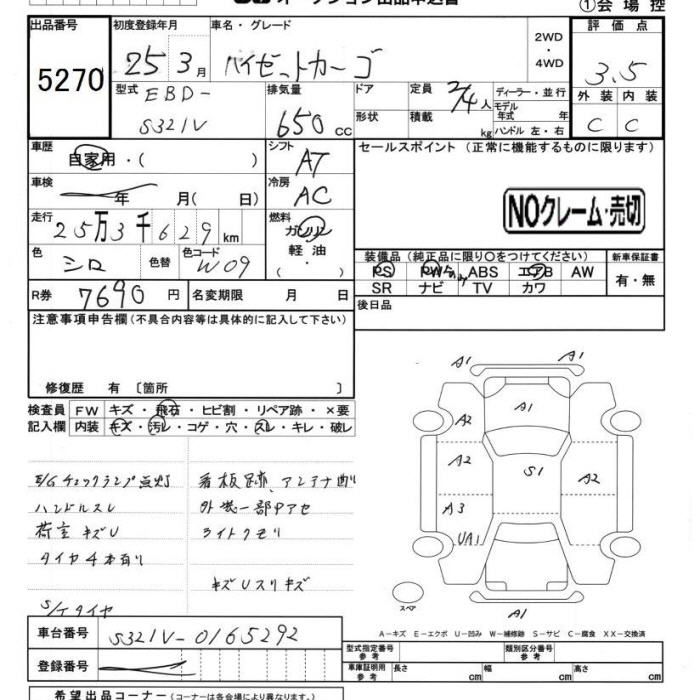 オークション出品申込書
①会場控
出品番号
5270
初度登録年月
25 3月
車名・グレード
ハイゼットカーゴ
2WD
・
4WD
評価点
3.5
外装 内装
C C
型式
EBD-
S321V
排気量
650 cc
ドア
形状
定員 2/4人
積載 kg
ディーラー・並行
モデル
年式 年
ハンドル 左・右
車歴
自家用・( )
シフト
AT
セールスポイント (正常に機能するものに限ります)
車検
年 月( 日)
冷房
AC
NOクレーム・売切
走行
25万3千629km
燃料
ガソリン
軽・油
( )
色
シロ
色替
色コード
W09
装備品(純正品に限り○をつけてください)
PS PW ABS エアB AW
SR ナビ TV カワ
新車保証書
有・無
R券 7690円
名変期限 月 日
後日品
注意事項申告欄(不具合内容等は具体的に記入して下さい)
修復歴 有 〔箇所 〕
検査員 FW キズ・飛石・ヒビ割・リペア跡・×要
記入欄 内装 キズ・汚レ・コゲ・穴・スレ・キレ・破レ
E/Gチェックランプ点灯
ハンドルスレ
荷室キズU
タイヤ4本有り
S/Tタイヤ
看板跡、アンテナ曲り
外装一部Pアセ
ライトクモリ
キズUスリキズ
A1 A1
A1
A2
A2 S1 A2
A3
UA1
A1
スペア
A-キズ E-エクボ U-凹み W-補修跡 S-サビ C-腐食 XX-交換済
車台番号 S321V-0165292
登録番号
型式指定番号
参考
類別区分番号
参考
車庫証明用
参考
長さ cm 幅 cm 高さ cm
希望出品コーナー(コーナーは各会場により異なります。)